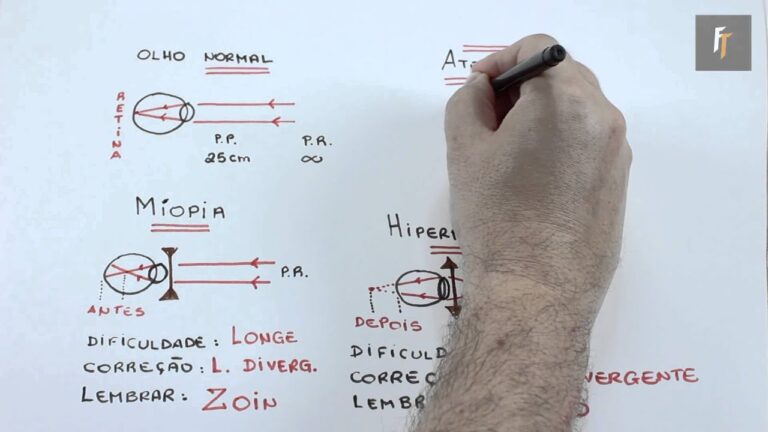 OLHO NORMAL
RETINA
P.P.
25cm
P.R.
∞
MÍOPIA
P.R.
ANTES
DIFICULDADE: LONGE
CORREÇÃO: L. DIVERG.
LEMBRAR: ZOIN
AT
HIPER
DEPOIS
DIFICULD
CORREÇ VERGENTE
LEMB
FT